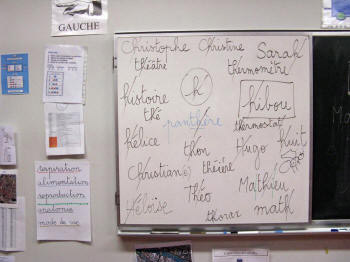 GAUCHE
Christophe Christine Sarah
théâtre thermomètre
h
histoire hibou
thé panthère thermostat
hélice thon Hugo huit
Christian(e) théière
Théo Mathieu
Héloïse thorax math
respiration
alimentation
reproduction
anatomie
mode de vie